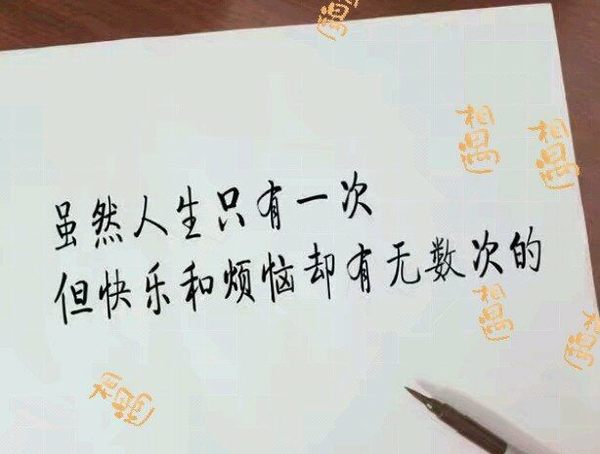 相遇
相遇
相遇
虽然人生只有一次
但快乐和烦恼却有无数次的
相遇
相遇
相遇